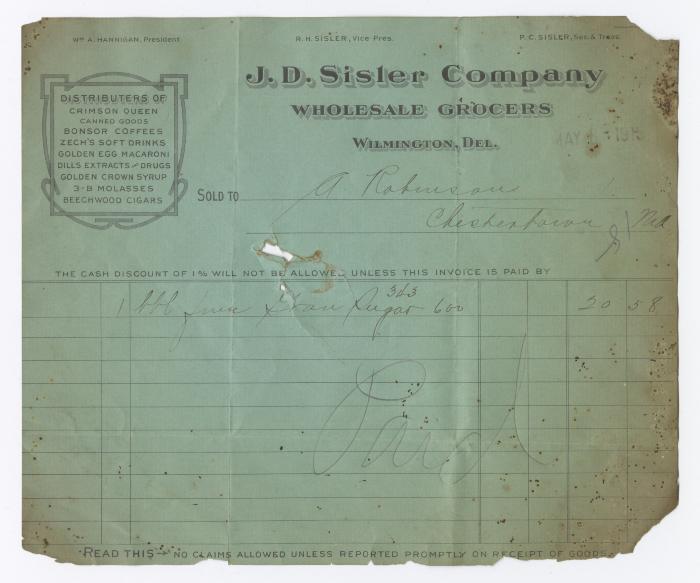 Wm A. HANNIGAN, President
R. H. SISLER, Vice Pres.
P. C. SISLER, Sec. & Treas.
J. D. Sisler Company
WHOLESALE GROCERS
WILMINGTON, DEL.
DISTRIBUTERS OF
CRIMSON QUEEN
CANNED GOODS
BONSOR COFFEES
ZECH'S SOFT DRINKS
GOLDEN EGG MACARONI
DILLS EXTRACTS AND DRUGS
GOLDEN CROWN SYRUP
3-B MOLASSES
BEECHWOOD CIGARS
MAY 191
SOLD TO A Robinson
Chestertown Md
THE CASH DISCOUNT OF 1% WILL NOT BE ALLOWED UNLESS THIS INVOICE IS PAID BY
1 bbl fine Gran Sugar 343 600 20 58
Paid
READ THIS— NO CLAIMS ALLOWED UNLESS REPORTED PROMPTLY ON RECEIPT OF GOODS.